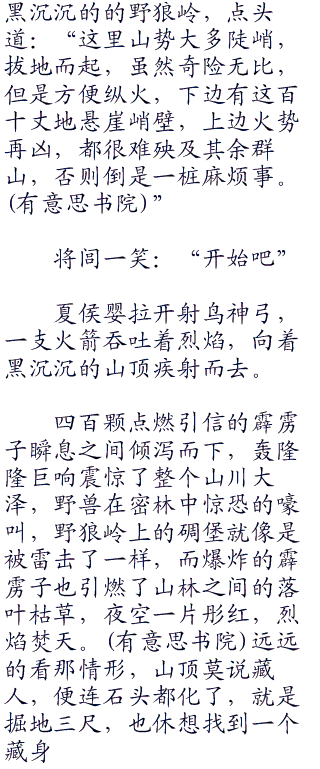 黑沉沉的的野狼岭，点头
道：“这里山势大多陡峭，
拔地而起，虽然奇险无比，
但是方便纵火，下边有这百
十丈地悬崖峭壁，上边火势
再凶，都很难殃及其余群
山，否则倒是一桩麻烦事。
(有意思书院)”
将闾一笑：“开始吧”
夏侯婴拉开射鸟神弓，
一支火箭吞吐着烈焰，向着
黑沉沉的山顶疾射而去。
四百颗点燃引信的霹雳
子瞬息之间倾泻而下，轰隆
隆巨响震惊了整个山川大
泽，野兽在密林中惊恐的嚎
叫，野狼岭上的碉堡就像是
被雷击了一样，而爆炸的霹
雳子也引燃了山林之间的落
叶枯草，夜空一片彤红，烈
焰焚天。(有意思书院)远远
的看那情形，山顶莫说藏
人，便连石头都化了，就是
掘地三尺，也休想找到一个
藏身